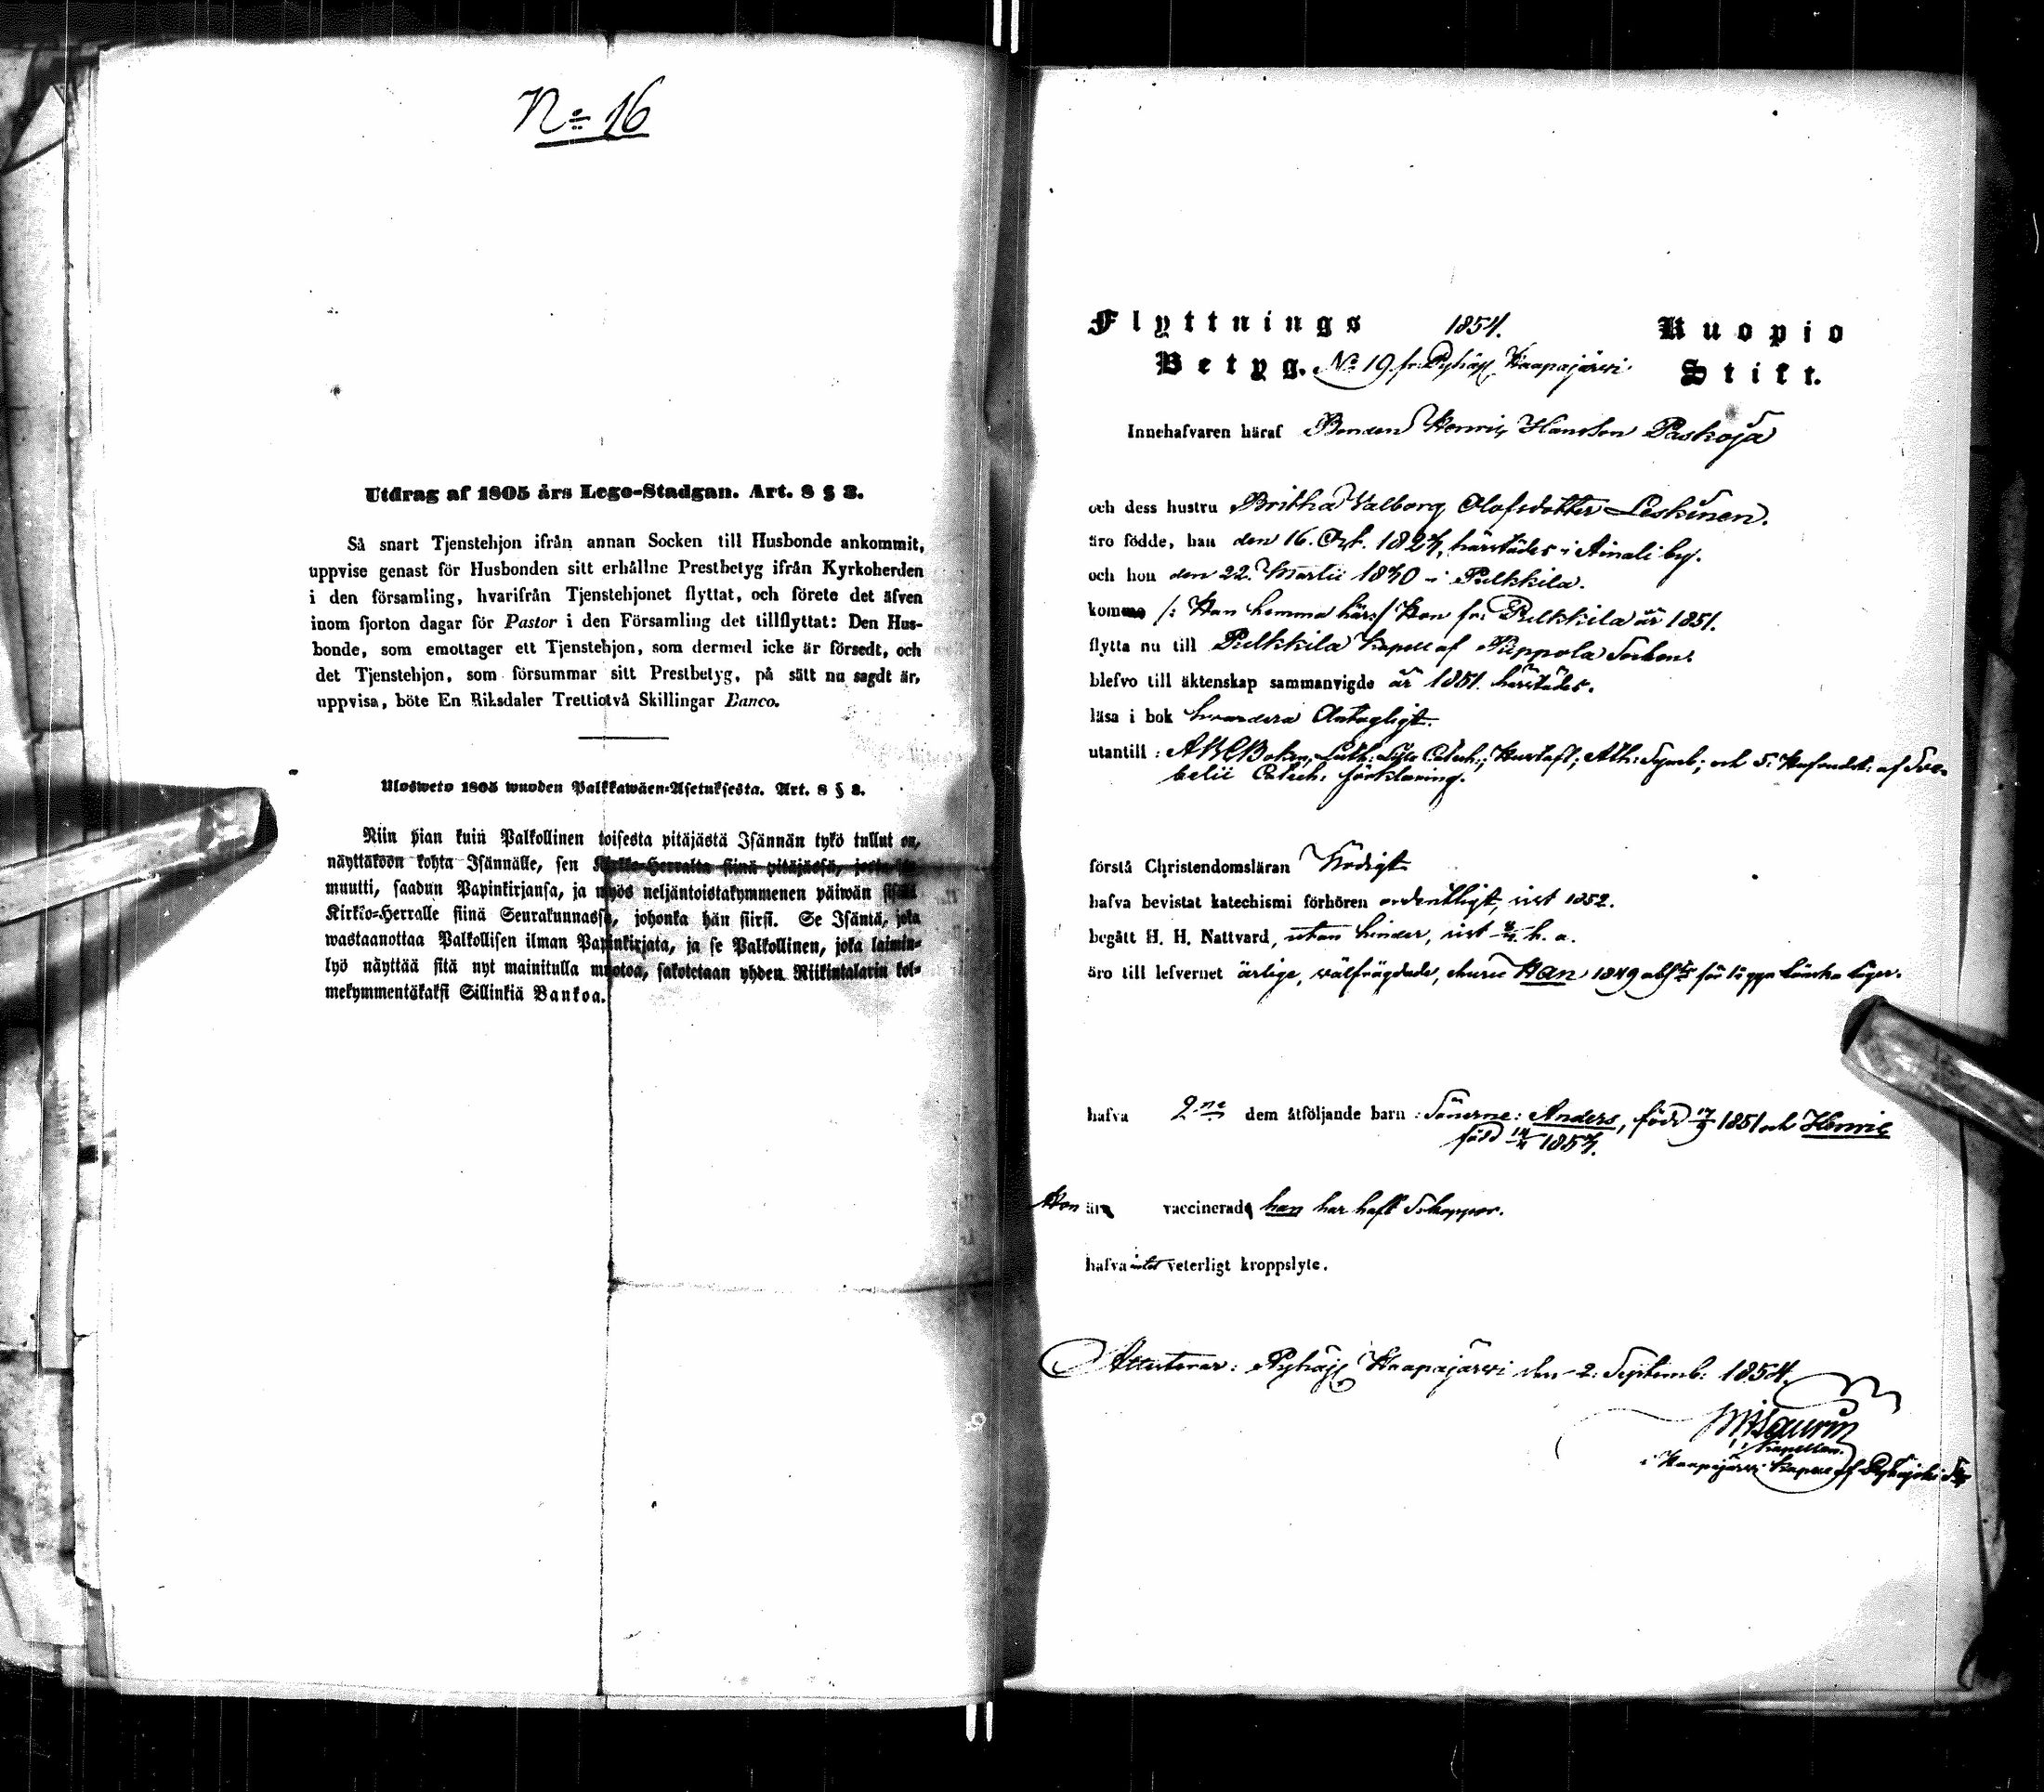 No 16
Utdrag af 1805 års Lego-Stadgan. Art. 8 § 3.
Så snart Tjenstehjon ifrån annan Socken till Husbonde ankommit,
uppvise genast för Husbonden sitt erhållne Prestbetyg ifrån Kyrkoherden
i den församling, hvarifrån Tjenstehjonet flyttat, och förete det äfven
inom fjorton dagar för Pastor i den Församling det tillflyttat: Den Hus-
bonde, som emottager ett Tjenstehjon, som dermed icke är försedt, och
det Tjenstehjon, som försummar sitt Prestbetyg, på sätt nu sagdt är,
uppvisa, böte En Riksdaler Trettiotvå Skillingar Banco.
Ulosweto 1805 wuoden Palkkawäen-Asetuksesta. Art. 8 § 3.
Niin pian kuin Palkollinen toisesta pitäjästä Isännän tykö tullut on,
näyttäköön kohta Isännälle, sen Kirkko-Herralta siinä pitäjässä, josta
muutti, saadun Papinkirjansa, ja myös neljäntoistakymmenen päiwän sisällä
Kirkko-Herralle siinä Seurakunnassa, johonka hän siirsi. Se Isäntä, joka
wastaanottaa Palkollisen ilman Papinkirjata, ja se Palkollinen, joka laimin-
lyö näyttää sitä nyt mainitulla muotoa, sakotetaan yhden Riikintalarin kol-
mekymmentäkaksi Sillinkiä Bankoa.
Flyttnings 1854. Kuopio
Betyg. No 19 fr. Pyhäj. Haapajärvi. Stift.
Innehafvaren häraf Bonden Henric Hansson Paskoja
och dess hustru Britha Valborg Olofsdotter Leskinen.
äro födde, han den 16. 1824, härstädes i Ainali by.
och hon den 22. Martii 1830 i Pulkkila.
komme /: Han hemma härs/ Hon fr. Pulkkila år 1851.
flytta nu till Pulkkila Kapell af Pippola Socken.
blefvo till äktenskap sammanvigde år 1851. härstädes.
läsa i bok hvardera Antagligt.
utantill: ABCBoken, Luth: Lilla Catech:, Hustafl; Ath: Symb; och 5: af Sve-
belii Catech: förklaring.
förstå Christendomsläran Nödigt
hafva bevistat katechismi förhören ordentligt, sist 1852.
begått H. H. Nattvard, utan hinder, sist h. a.
äro till lefvernet ärlige, välfrägdade, churu Han 1849 för 1a ggn Lönska läger.
hafva 2ne dem åtföljande barn: Sönerne: Anders, född 17/9 1851 och Henric
född 1854.
Hon är vaccinerad han har haft Skoppor.
hafva intet veterligt kroppslyte.
Attesterar: Pyhäj. Haapajärvi den 2. Septemb: 1854.
Laurin
Kapellan.
i Haapajärvi Kapell af Pyhäjoki